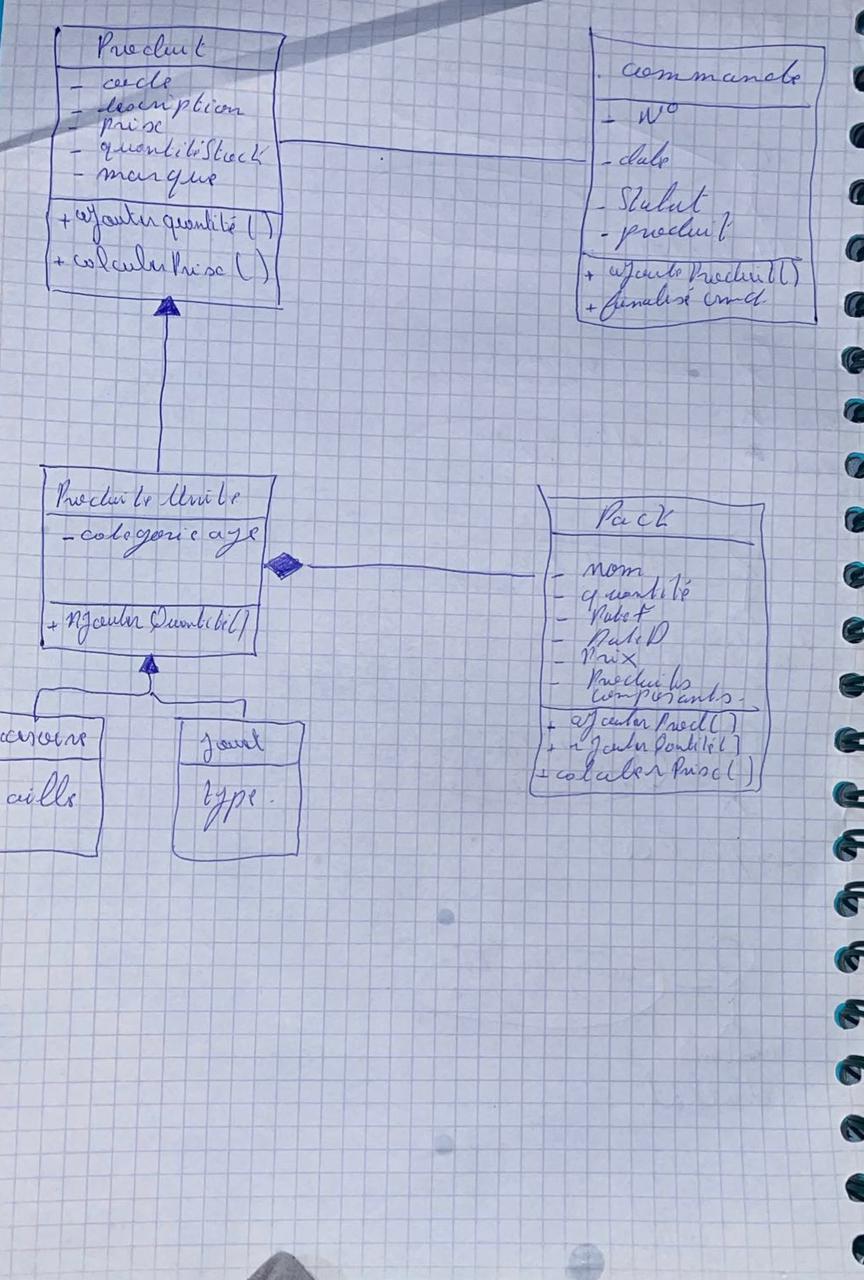 Produit
- code
- description
- prix
- quantitéStock
- marque
+ ajouter quantité ()
+ calculer Prix ()
commande
- N°
- date
- Statut
- produit
+ ajoute Produit()
+ finalisé cmd.
Produite Unite
- categorie age
+ ajouter Quantité()
Pack
- nom
- quantité
- DateF
- DateD
- Prix
- Produits
composants.
+ ajouter Prod()
+ ajouter Qantité()
+ calculer Prix()
aille
type.